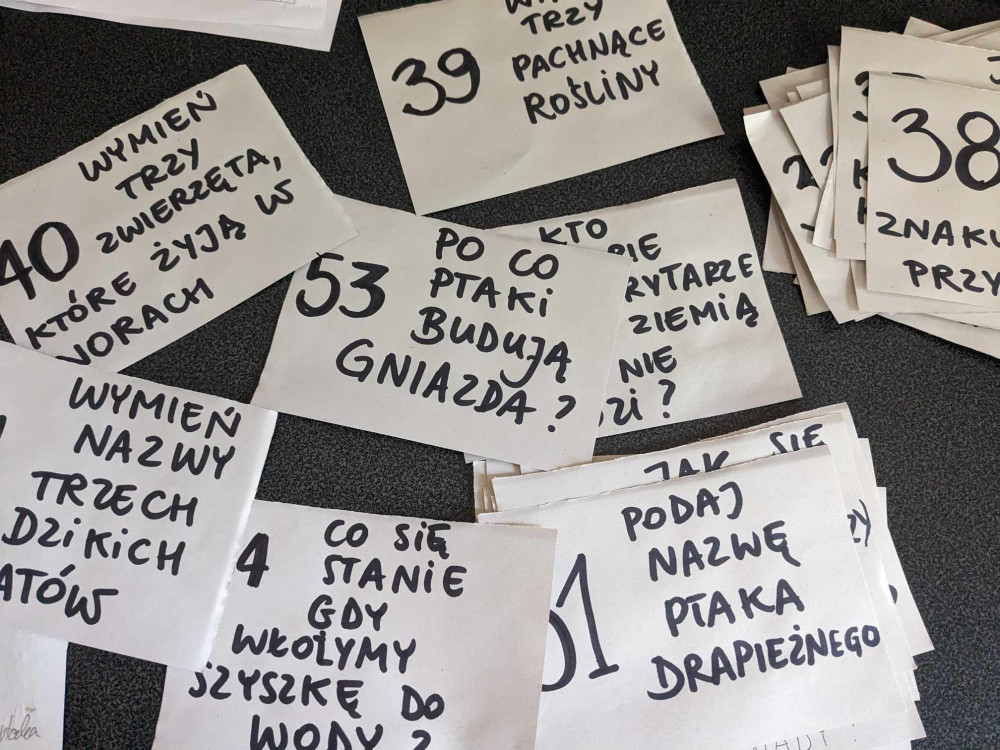 39
TRZY
PACHNĄCE
ROŚLINY
40
WYMIEŃ
TRZY
ZWIERZĘTA,
KTÓRE ŻYJĄ W
NORACH
53
PO CO
PTAKI
BUDUJĄ
GNIAZDA?
KTO
ZIEMIĄ
NIE
?
38
WYMIEŃ
NAZWY
TRZECH
DZIKICH
4
CO SIĘ
STANIE
GDY
WŁOŻYMY
SZYSZKĘ DO
WODY?
JAK SIĘ
1
PODAJ
NAZWĘ
PTAKA
DRAPIEŻNEGO